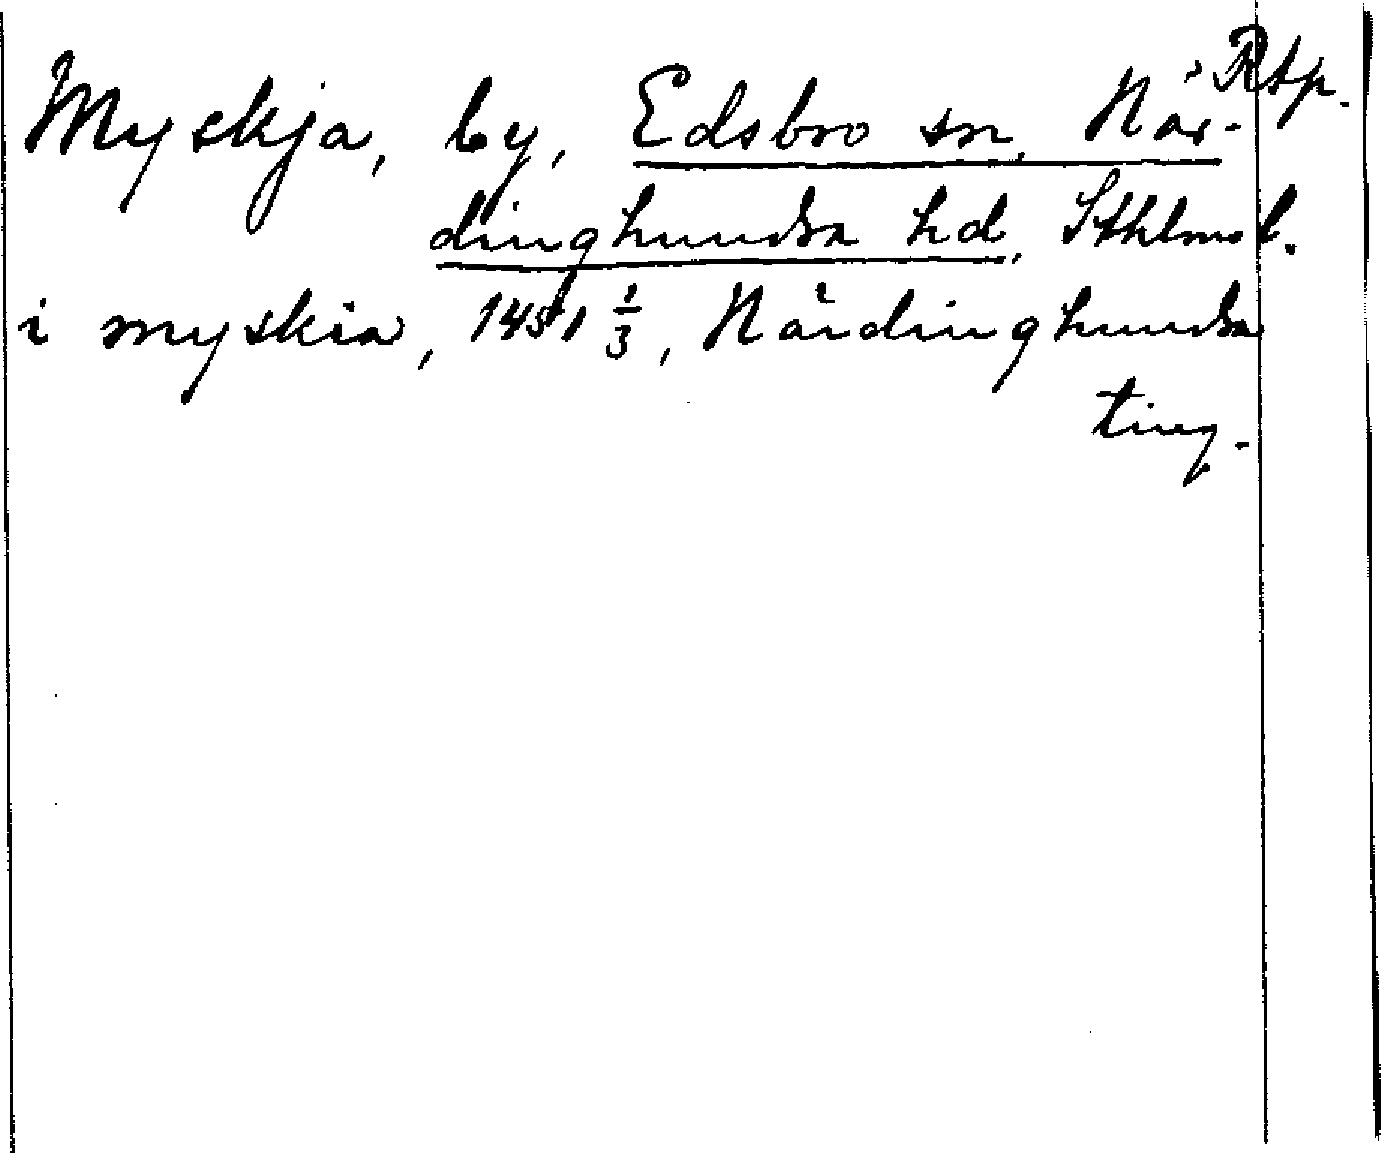 Rtp.
Myskja, by, Edsbro sn, När-
dinghundra hd, Sthlms l.
i myskia, 1451 1/3, Närdinghundra
ting.